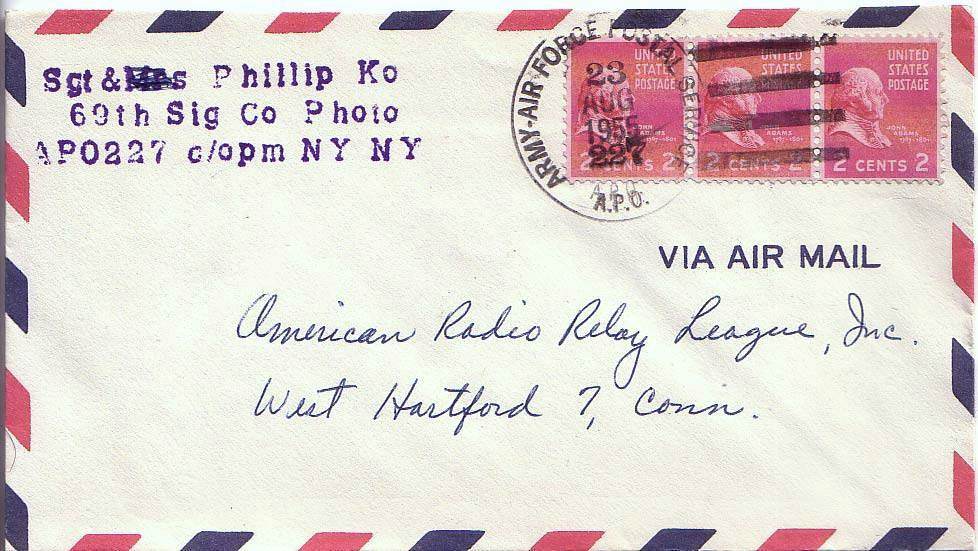 Sgt & Phillip Ko
69th Sig Co Photo
APO227 c/opm NY NY
ARMY-AIR FORCE POSTAL SERVICE
23
AUG
1955
227
A.P.O.
UNITED
STATES
POSTAGE
JOHN
ADAMS
2 CENTS 2
UNITED
STATES
POSTAGE
JOHN
ADAMS
2 CENTS 2
UNITED
STATES
POSTAGE
JOHN
ADAMS
1797-1801
2 CENTS 2
VIA AIR MAIL
American Radio Relay League, Inc.
West Hartford 7, Conn.